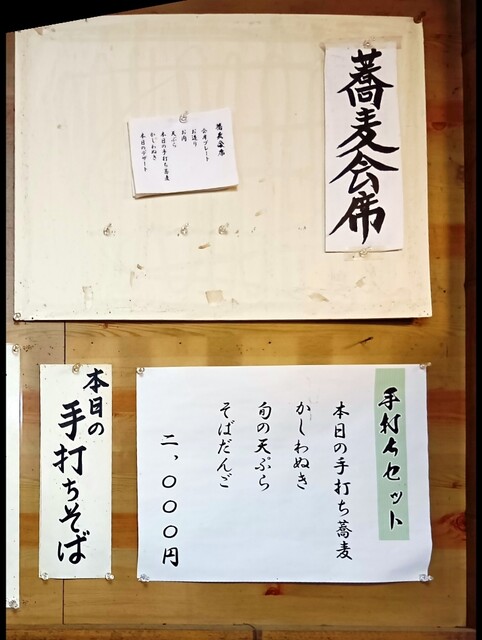 蕎麦会席
蕎麦会席
前菜プレート
お造り
お肉
天ぷら
本日の手打ち蕎麦
かしわぬき
本日のデザート
手打ちセット
本日の手打ち蕎麦
かしわぬき
旬の天ぷら
そばだんご
二、〇〇〇円
本日の
手打ちそば